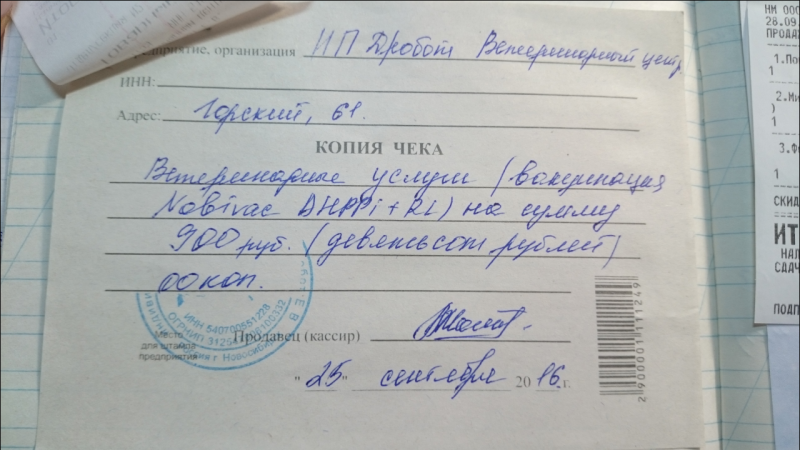 Предприятие, организация ИП Дробот Ветеринарный центр
ИНН:
Адрес: Горский, 61.
КОПИЯ ЧЕКА
Ветеринарные услуги (вакцинация
Nobivac DHPPi+RL) на сумму
900 руб. (девятьсот рублей)
00 коп.
ИНН 540700551228
Место
для штампа
предприятия
Продавец (кассир)
"25" сентября 2016 г.
2 900001 111249
НМ ООО
28.09
ПРОДА
1.По
1
2.Ми
)
1
3.Ф
1
СКИД
ИТ
НАЛ
СДАЧ
ПОДП